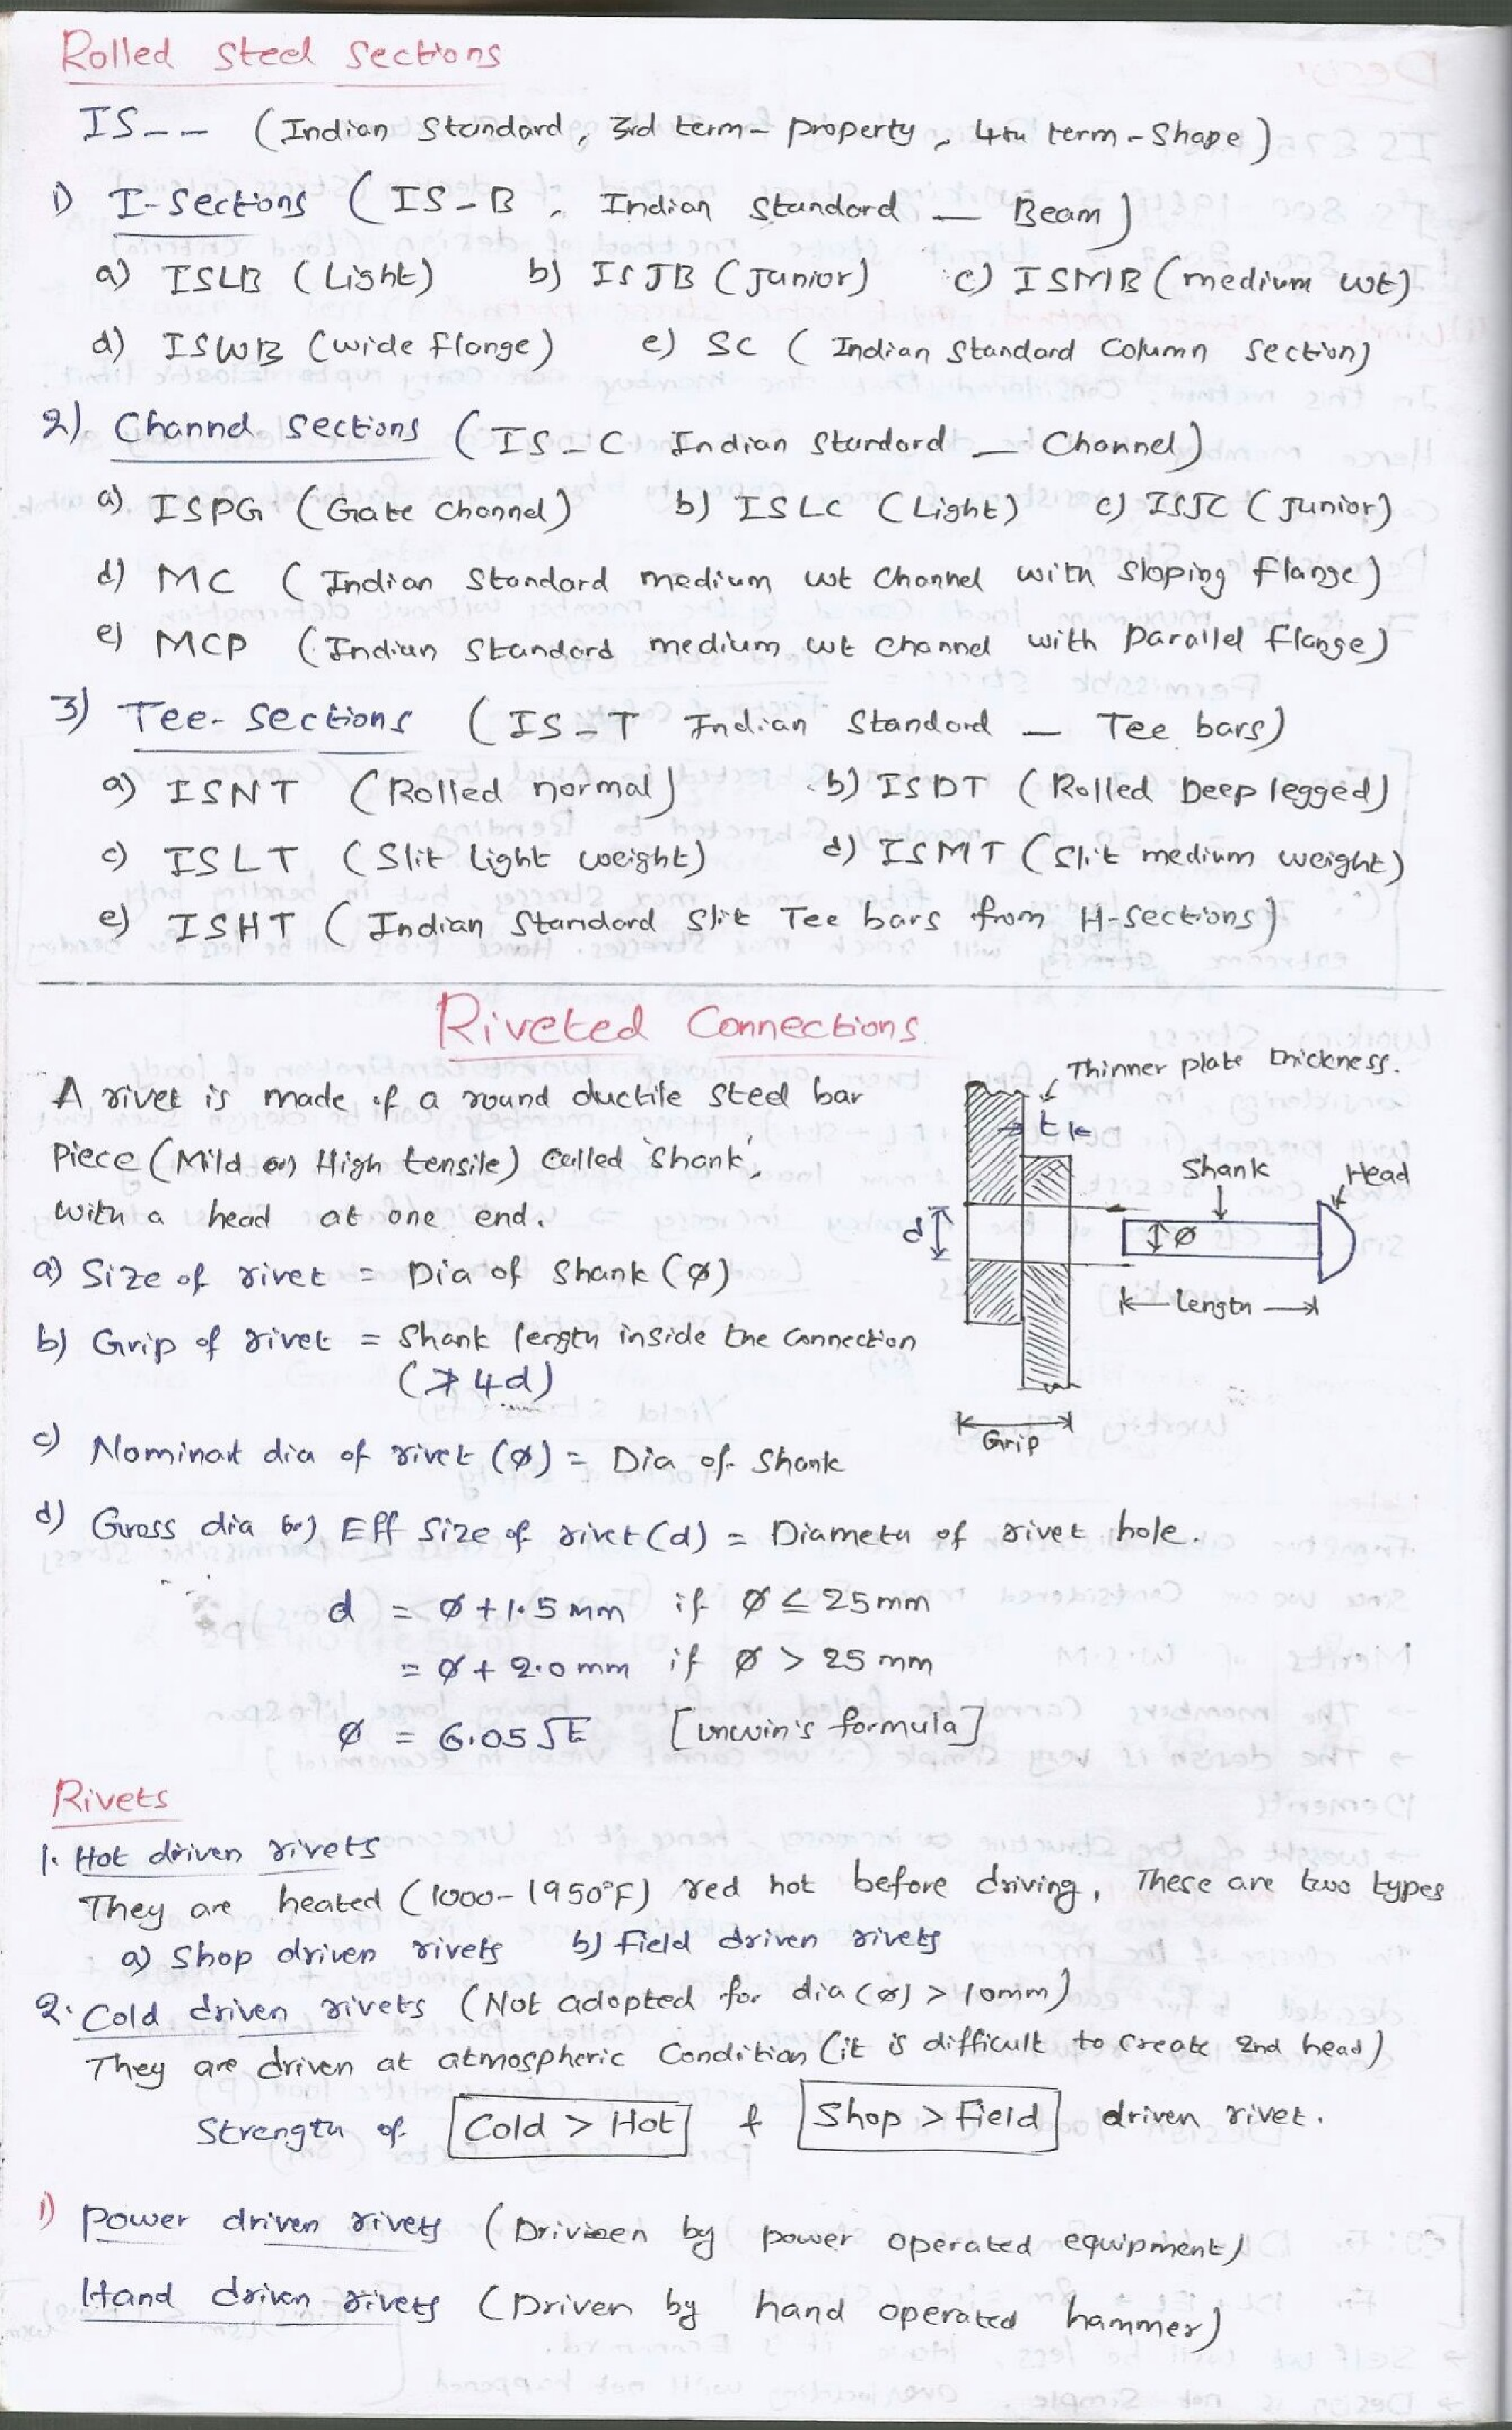 Rolled Steel Sections
IS-- (Indian Standard, 3rd term - property, 4th term - Shape)
1) I-Sections (IS-B, Indian Standard — Beam)
a) ISLB (Light) b) ISJB (Junior) c) ISMB (medium wt)
d) ISWB (wide flange) e) SC (Indian Standard Column Section)
2) Channel Sections (IS-C Indian Standard — Channel)
a) ISPG (Gate Channel) b) ISLC (Light) c) ISJC (Junior)
d) MC (Indian Standard medium wt Channel with Sloping Flange)
e) MCP (Indian Standard medium wt Channel with Parallel Flange)
3) Tee-Sections (IS-T Indian Standard — Tee bars)
a) ISNT (Rolled normal) b) ISDT (Rolled Deep legged)
c) ISLT (Slit Light weight) d) ISMT (Slit medium weight)
e) ISHT (Indian Standard Slit Tee bars from H-Sections)
Riveted Connections
A rivet is made of a round ductile Steel bar
Piece (Mild or High tensile) Called 'Shank',
with a head at one end.
a) Size of rivet = Dia of Shank (ø)
b) Grip of rivet = Shank length inside the Connection
(≯ 4d)
Thinner plate thickness.
t
Shank
Head
d
ø
Length
Grip
c) Nominal dia of rivet (ø) = Dia of Shank
d) Gross dia (or) Eff Size of rivet (d) = Diameter of rivet hole.
d = ø + 1.5 mm if ø ≤ 25 mm
= ø + 2.0 mm if ø > 25 mm
ø = 6.05 √t [Unwin's formula]
Rivets
1. Hot driven rivets
They are heated (1000-1950°F) red hot before driving, These are two types
a) Shop driven rivets b) Field driven rivets
2. Cold driven rivets (Not adopted for dia (ø) > 10mm)
They are driven at atmospheric Condition (it is difficult to Create 2nd head)
Strength of Cold > Hot & Shop > Field driven rivet.
1) Power driven rivets (Driven by power operated equipment)
Hand driven rivets (Driven by hand operated hammer)